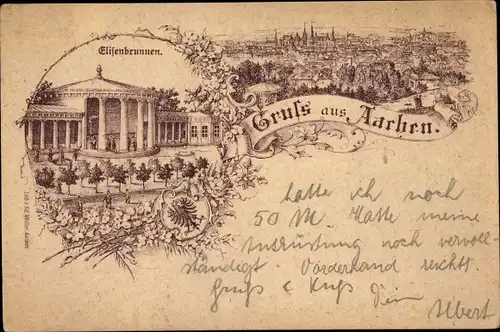 Elisenbrunnen.
Gruss aus Aachen.
hatte ich noch
50 M. Hatte meine
Ausrüstung noch vervoll-
ständigt. Vorderhand reichts.
Gruß & Kuß
Dein
Albert